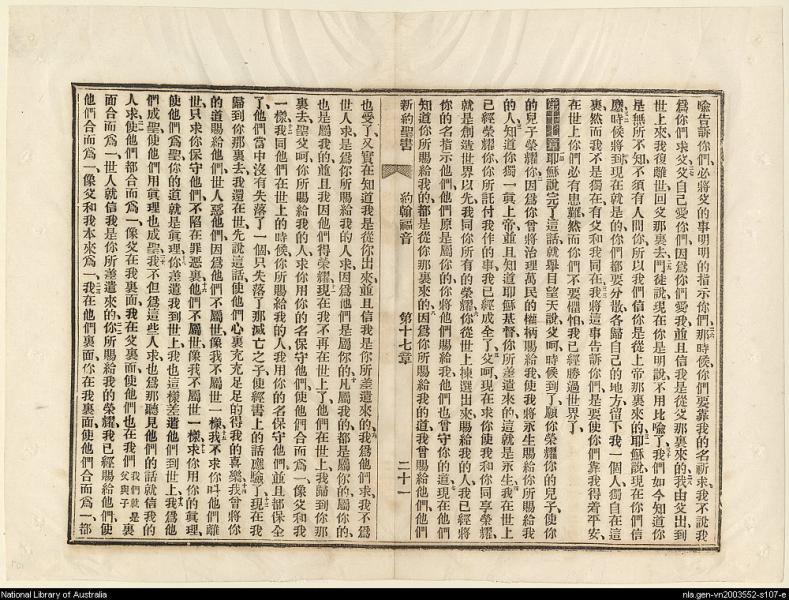 喩告訴你們必將父的事明明的指示你們那時候你們要靠我的名祈求我不說我
爲你們求父父自己愛你們因爲你們愛我並且信我是從父那裏來的我由父出到
世上來我復離世回父那裏去門徒說現在你是明說不用比喩了我們如今知道你
是無所不知不須有人問你所以我們信你是從上帝那裏來的耶穌說現在你們信
麼時候將到現在就是的你們都要分散各歸自己的地方留下我一個人獨自在這
裏然而我不是獨在有父和我同在我將這事告訴你們是要使你們靠我得着平安
在世上你們必有患難然而你們不要懼怕我已經勝過世界了
第十七章耶穌說完了這話就舉目望天說父呵時候到了願你榮耀你的兒子使你
的兒子榮耀你因爲你曾將治理萬民的權柄賜給我使我將永生賜給你所賜給我
的人知道你獨一眞上帝並且知道耶穌基督你所差遣來的這就是永生我在世上
已經榮耀你你所託付我作的事我已經成全了父呵現在求你使我和你同享榮耀
就是創造世界以先我同你所有的榮耀你從世上揀選出來賜給我的人我已經將
你的名指示他們他們原是屬你的你將他們賜給我他們也曾守你的道現在他們
知道你所賜給我的都是從你那裏來的因爲你所賜給我的道我曾賜給他們他們
新約聖書 約翰福音 第十七章 二十一
也受了又實在知道我是從你出來並且信我是你所差遣來的我爲他們求我不爲
世人求是爲你所賜給我的人求因爲他們是屬你的凡屬我的都是屬你的屬你的
也是屬我的並且我因他們得榮耀現在我不再在世上了他們在世上我歸到你那
裏去聖父呵你所賜給我的人求你用你的名保守他們使他們合而爲一像父和我
一樣我同他們在世上的時候你所賜給我的人我用你的名保守他們並且都保全
了他們當中沒有失落了一個只失落了那滅亡之子使經書上的話應驗了現在我
歸到你那裏去我還在世先說這話使他們心裏充充足足的得我的喜樂我曾將你
的道賜給他們世人惡他們因爲他們不屬世像我不屬世一樣我不求你叫他們離
世只求你保守他們不陷在罪惡裏他們不屬世像我不屬世一樣求你用你的眞理
使他們爲聖你的道就是眞理你差遣我到世上我也這樣差遣他們到世上我爲他
們成聖使他們用眞理也成聖我不但爲這些人求也爲那聽見他們的話就信我的
人求使他們都合而爲一像父在我裏面我在父裏面使他們也在我們我們就是父與子裏
面合而爲一世人就信我是你所差遣來的你所賜給我的榮耀我已經賜給他們使
他們合而爲一像父和我本來爲一我在他們裏面你在我裏面使他們合而爲一都
National Library of Australia
nla.gen-vn2003552-s107-e